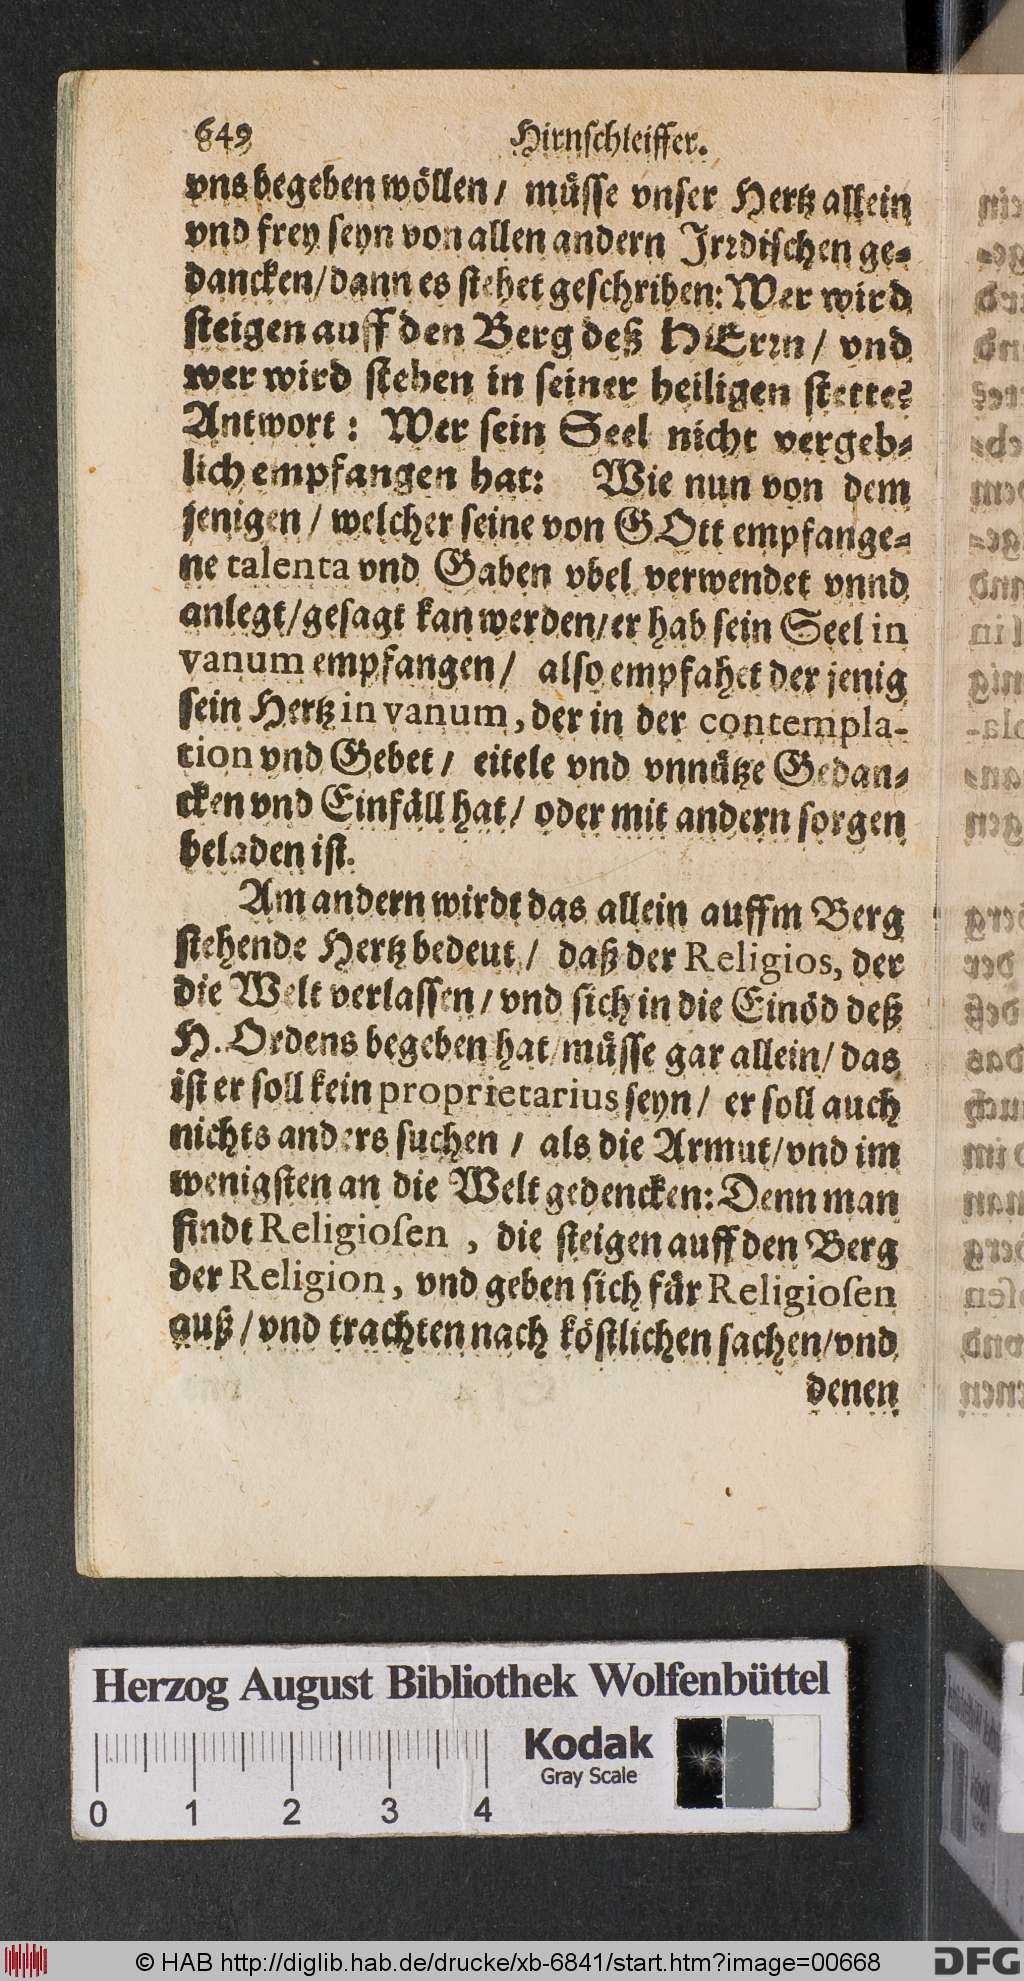 649 Hirnſchleiffer.
vns begeben wöllen / müſſe vnſer Hertz allein
vnd frey ſeyn von allen andern Jrꝛdiſchen ge⸗
dancken / dann es ſtehet geſchriben: Wer wird
ſteigen auff den Berg deß HErꝛn / vnd
wer wird ſtehen in ſeiner heiligen ſtette?
Antwort: Wer ſein Seel nicht vergeb⸗
lich empfangen hat: Wie nun von dem
jenigen / welcher ſeine von GOtt empfange⸗
ne talenta vnd Gaben vbel verwendet vnnd
anlegt / geſagt kan werden / er hab ſein Seel in
vanum empfangen / alſo empfahet der jenig
ſein Hertz in vanum, der in der contempla-
tion vnd Gebet / eitele vnd vnnütze Gedan⸗
cken vnd Einfäll hat / oder mit andern ſorgen
beladen iſt.
Am andern wirdt das allein auffm Berg
ſtehende Hertz bedeut / daß der Religios, der
die Welt verlaſſen / vnd ſich in die Einöd deß
H. Ordens begeben hat / müſſe gar allein / das
iſt er ſoll kein proprietarius ſeyn / er ſoll auch
nichts anders ſuchen / als die Armut / vnd im
wenigſten an die Welt gedencken: Denn man
findt Religioſen, die ſteigen auff den Berg
der Religion, vnd geben ſich für Religioſen
auß / vnd trachten nach köſtlichen ſachen / vnd
denen
Herzog August Bibliothek Wolfenbüttel
Kodak
Gray Scale
0 1 2 3 4
© HAB http://diglib.hab.de/drucke/xb-6841/start.htm?image=00668
DFG